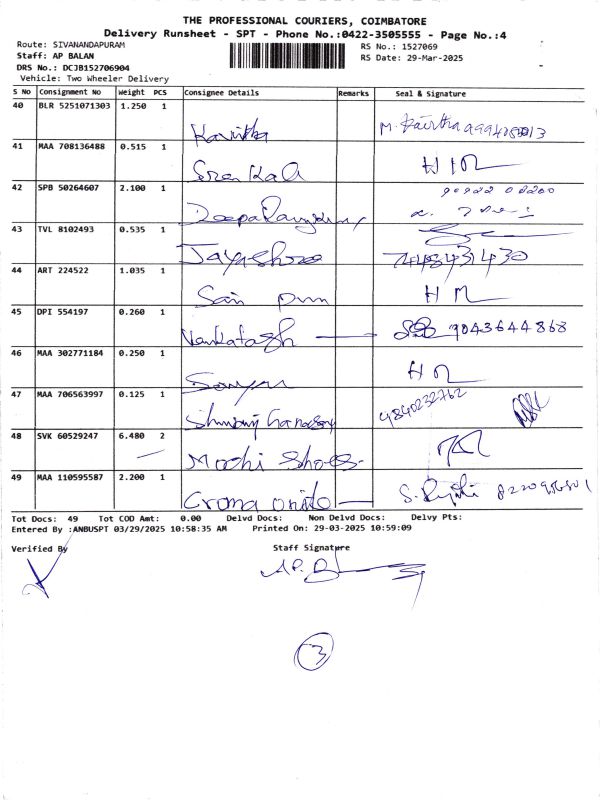 THE PROFESSIONAL COURIERS, COIMBATORE
Delivery Runsheet - SPT - Phone No.:0422-3505555 - Page No.:4
Route: SIVANANDAPURAM RS No.: 1527069
Staff: AP BALAN RS Date: 29-Mar-2025
DRS No.: DCJB152706904
Vehicle: Two Wheeler Delivery
S No Consignment No Weight PCS Consignee Details Remarks Seal & Signature
40 BLR 5251071303 1.250 1
Kavitha
41 MAA 708136488 0.515 1
42 SPB 50264607 2.100 1
43 TVL 8102493 0.535 1
Jayashree 7448431430
44 ART 224522 1.035 1
Sai
45 DPI 554197 0.260 1
Venkatesh 9043644868
46 MAA 302771184 0.250 1
47 MAA 706563997 0.125 1
9840232762
48 SVK 60529247 6.480 2
Mochi Shoes
49 MAA 110595587 2.200 1
Croma
Tot Docs: 49 Tot COD Amt: 0.00 Delvd Docs: Non Delvd Docs: Delvy Pts:
Entered By :ANBUSPT 03/29/2025 10:58:35 AM Printed On: 29-03-2025 10:59:09
Verified By Staff Signature
3